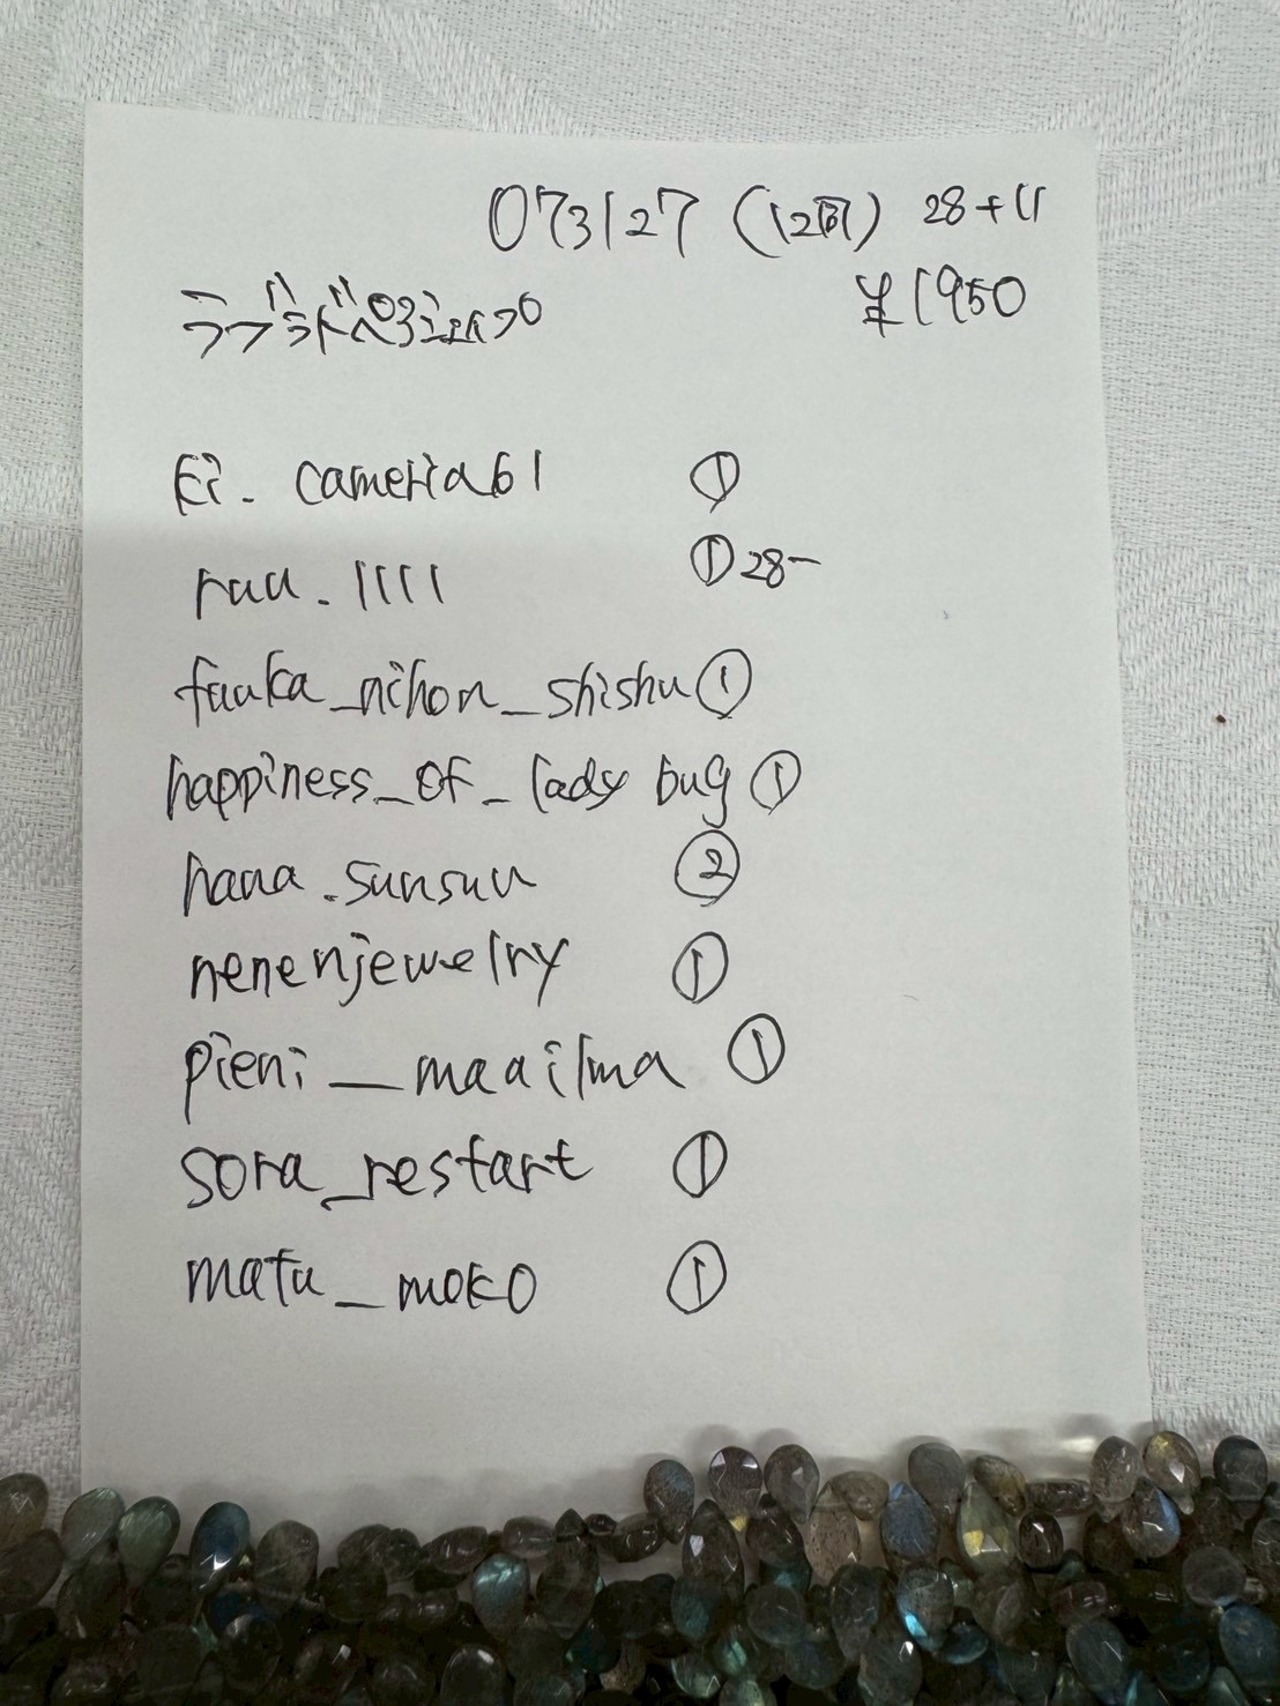 073127 (12同) 28+11
ラブラドペアシェイプ
¥1950
ki. cameria61 ①
ruu.1111 ① 28-
fuuka_nihon_shishu ①
happiness_of_lady bug ①
hana.sunsun ②
nenenjewelry ①
pieni_maailma ①
sora_restart ①
matu_moko ①